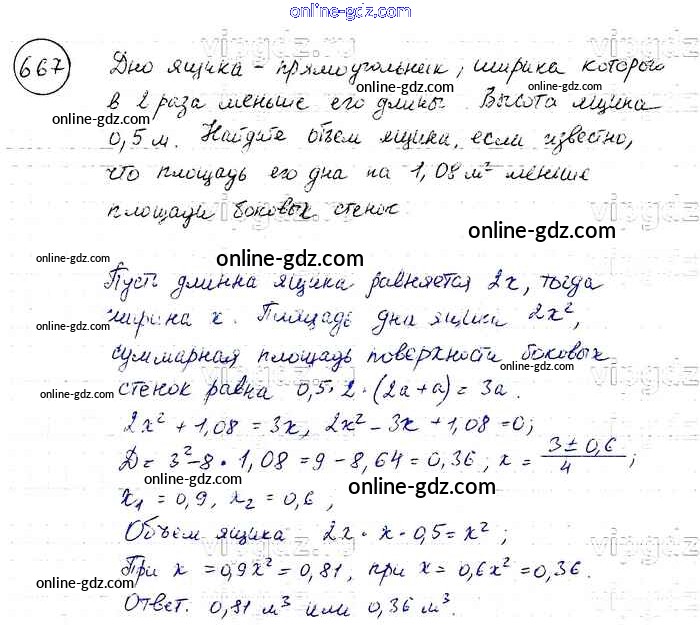 online-gdz.com
667 Дно ящика - прямоугольник, ширина которого
в 2 раза меньше его длины. Высота ящика
0,5 м. Найдите объем ящика, если известно,
что площадь его дна на 1,08 м² меньше
площади боковых стенок.
online-gdz.com
online-gdz.com
online-gdz.com
online-gdz.com
Пусть длинна ящика равняется 2x, тогда
ширина x. Площадь дна ящика 2x²,
online-gdz.com
online-gdz.com
суммарная площадь поверхности боковых
стенок равна 0,5·2·(2a+a)=3a.
online-gdz.com
online-gdz.com
2x²+1,08=3x, 2x²-3x+1,08=0;
D=3²-8·1,08=9-8,64=0,36; x=(3±0,6)/4;
x₁=0,9, x₂=0,6,
online-gdz.com
online-gdz.com
Объем ящика 2x·x·0,5=x²;
При x=0,9x²=0,81, при x=0,6x²=0,36.
online-gdz.com
online-gdz.com
Ответ. 0,81 м³ или 0,36 м³.